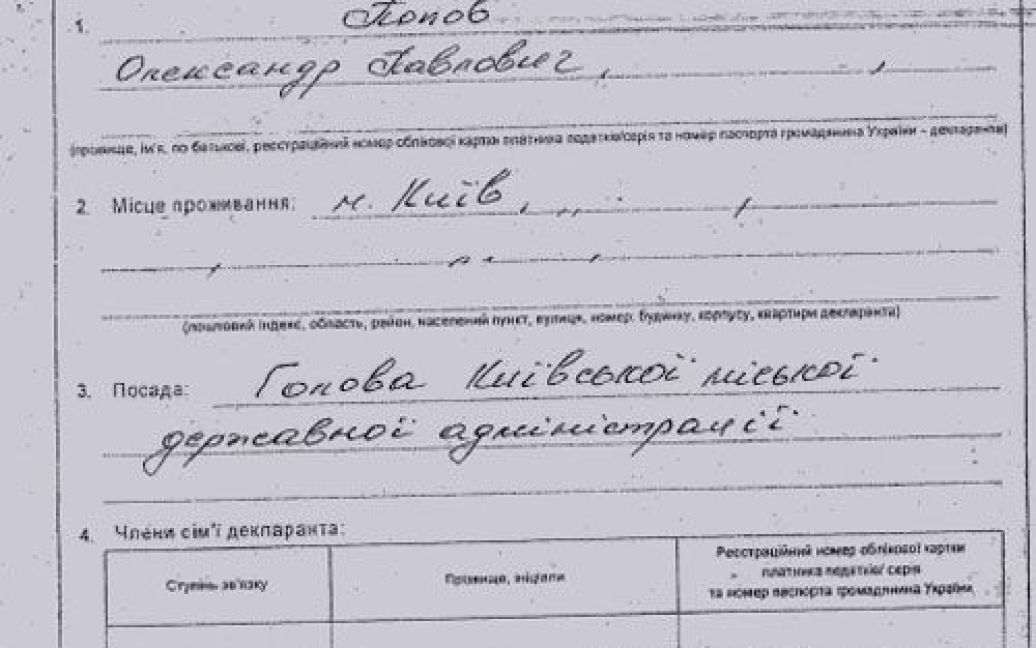 1. Попов
Олександр Павлович, ,
(прізвище, ім'я, по батькові, реєстраційний номер облікової картки платника податків/серія та номер паспорта громадянина України - декларанта)
2. Місце проживання: м. Київ, ,, ,
, ,, ,
(поштовий індекс, область, район, населений пункт, вулиця, номер, будинку, корпусу, квартири декларанта)
3. Посада: Голова Київської міської
державної адміністрації
4. Члени сім'ї декларанта:
Ступінь зв'язку
Прізвище, ініціали
Реєстраційний номер облікової картки
платника податків/ серія
та номер паспорта громадянина України